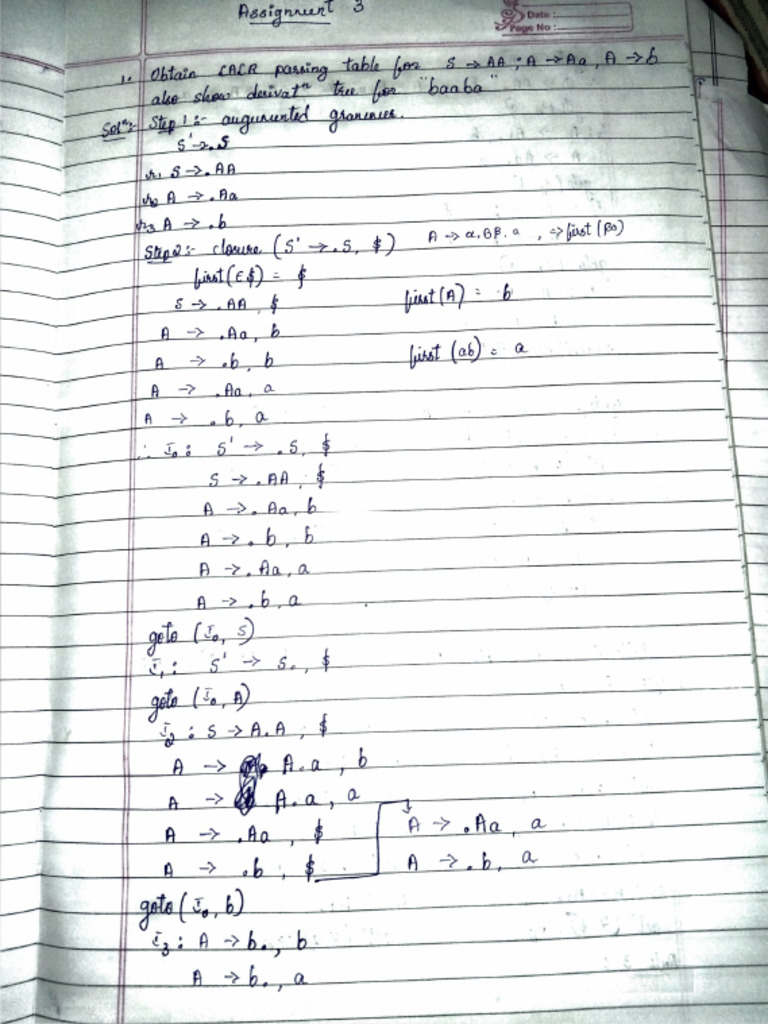 Assignment 3
Date :
Page No :
1. Obtain LALR parsing table for S → AA ; A → Aa, A → b
also show derivatn tree for "baaba"
Soln:- Step 1:- augumented grammer.
S' → .S
r1 S → .AA
r2 A → .Aa
r3 A → .b
Step 2:- closure (S' → .S, $) A → α.Bβ.a , ⇒ first (βa)
first(ε$) = $
S → .AA, $ first(A) = b
A → .Aa, b
A → .b, b first (ab) = a
A → .Aa, a
A → .b, a
∴ I0 : S' → .S, $
S → .AA, $
A → .Aa, b
A → .b, b
A → .Aa, a
A → .b, a
goto (I0, S)
I1 : S' → S., $
goto (I0, A)
I2 : S → A.A, $
A → A.a, b
A → A.a, a
A → .Aa, $ A → .Aa, a
A → .b, $ A → .b, a
goto (I0, b)
I3 : A → b., b
A → b., a